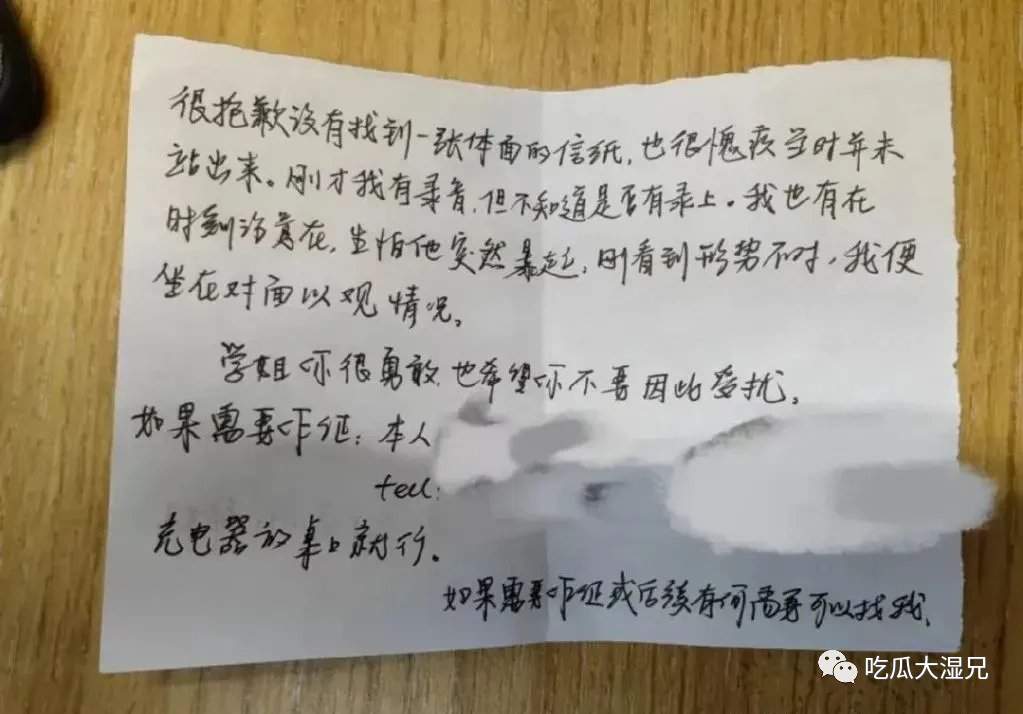 很抱歉没有找到一张体面的信纸,也很愧疚当时并未
站出来。刚才我有录音,但不知道是否有录上。我也有在
时刻注意在,生怕他突然暴起,刚看到形势不对,我便
坐在对面以观情况。
学姐你很勇敢,也希望你不要因此受扰。
如果需要作证:本人
tell:
充电器放桌上就行。
如果需要作证或后续有何需要可以找我,
吃瓜大湿兄